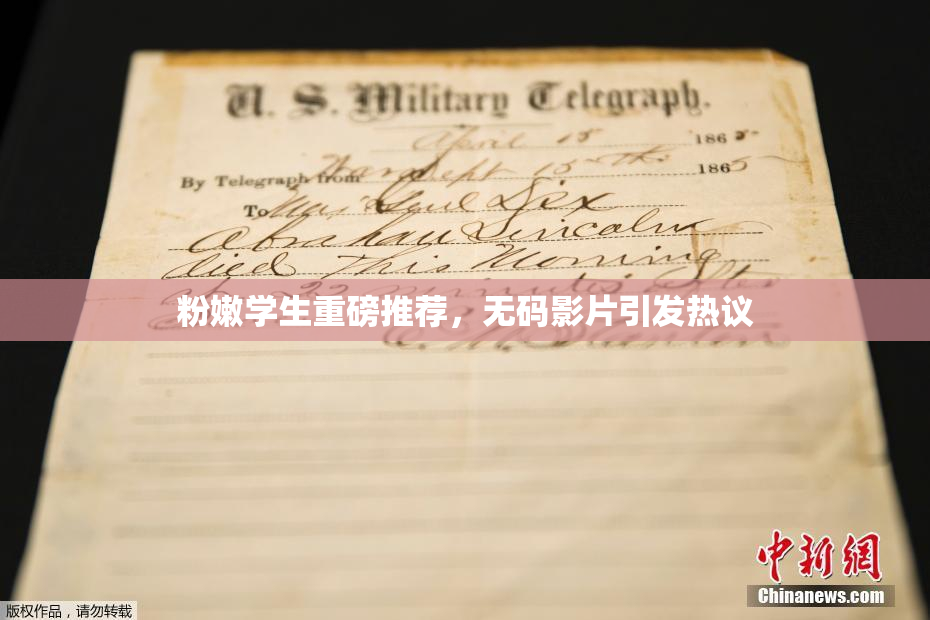 U. S. Military Telegraph.
April 15 1865
By Telegraph from War Dept 15th 1865
To Maj Genl Dix
Abraham Lincoln
died This Morning
22 minutes after
粉嫩学生重磅推荐，无码影片引发热议
E. M. Stanton
中新网
Chinanews.com
版权作品，请勿转载